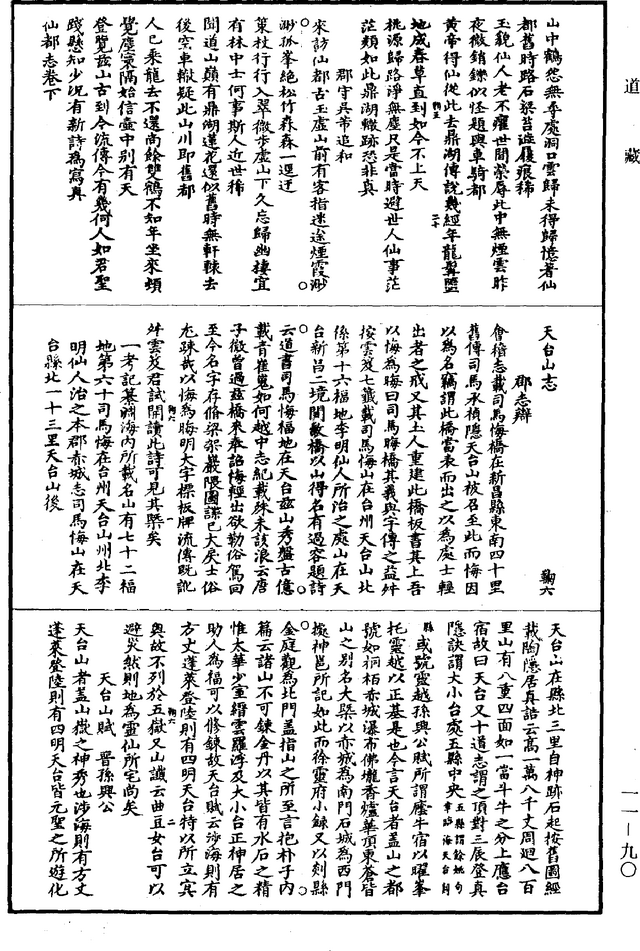 道藏
山中鶴怨無尋處洞口雲歸未得歸憶著仙
都舊時路石梁苔滋屐痕稀
玉貌仙人老不癯世間榮辱此中無煙雲昨
夜微銷鑠似怪題輿車騎都
黄帝得仙從此去鼎湖傳說幾經年龍髯墮
地成春草直到如今不上天
桃源歸路淨無塵只是當時避世人仙事茫
茫類如此鼎湖轍跡恐非真
郡守吳芾追和
來訪仙都古玉虛山前有客指迷途煙霞渺
渺孤峯絕松竹森森一逕迂
䇿杖行行入翠微步虛山下久忘歸幽棲宜
有林中士何事斯人近世稀
聞道山巔有鼎湖蓮花還似舊時無軒轅去
後空車轍疑此山川即舊都
人已乘龍去不還尚餘雙鶴不知年坐來頓
覺塵寰隔始信壺中別有天
登覽兹山古到今流傳今有幾何人如君聖
踐懸知少況有新詩爲寫真
仙都志卷下
天台山志 鞠六
郡志辯
會稽志載司馬悔橋在新昌縣東南四十里
舊傳司馬承禎隱天台山被召至此而悔因
以為名竊謂此橋當表而出之以為處士輕
出者之戒又其土人重建此橋板書其上吾
以悔為晦曰司馬晦橋其義與字傳之益舛
按雲笈七籤載司馬悔山在台州天台山北
係第十六福地李明仙人所治之處山在天
台新昌二境間斯橋以山得名有過客題詩
云道書司馬悔福地在天台兹山秀盤古億
載青崔嵬如何越中志紀載殊未該浪云唐
子微曽過兹橋來奉詔悔輕出欲勒俗駕回
至今名字存脩梁架巖隈圖譜已大戾士俗
尤踈哉以悔為晦明大字標板牌流傳旣訛
舛雲笈君試開讀此詩可見其槩矣
一考記纂淵海内所載名山有七十二福
地第六十司馬悔在台州天台山州北李
明仙人治之本郡赤城志司馬悔山在天
台縣北一十三里天台山後
天台山在縣北三里自神跡石起按舊圖經
載陶隱居真誥云高一萬八千丈周迴八百
里山有八重四面如一當斗牛之分上應台
宿故曰天台又十道志謂之頂對三辰登真
隱訣謂大小台處五縣中央五縣謂餘姚句章臨海天台剡
縣或號靈越孫興公賦所謂蔭牛宿以曜峯
托靈越以正基是也今言天台者蓋山之都
號如桐栢赤城瀑布佛壠香爐華頂東蒼皆
山之別名大槩以赤城為南門石城為西門
據神邕所記如此而徐靈府小録又以剡縣
金庭觀為北門蓋指山之所至言抱朴子内
篇云諸山不可鍊金丹以其皆有水石之精
惟太華少室縉雲羅浮及大小台正神居之
助人為福可以修鍊故天台賦云渉海則有
方丈蓬萊登陸則有四明天台特以所立㝠
奥故不列於五嶽又山讖云曲豆女台可以
避災然則地為靈仙所宅尚矣
天台山賦 晉孫興公
天台山者蓋山嶽之神秀也渉海則有方丈
蓬萊登陸則有四明天台皆元聖之所遊化
一一—九〇